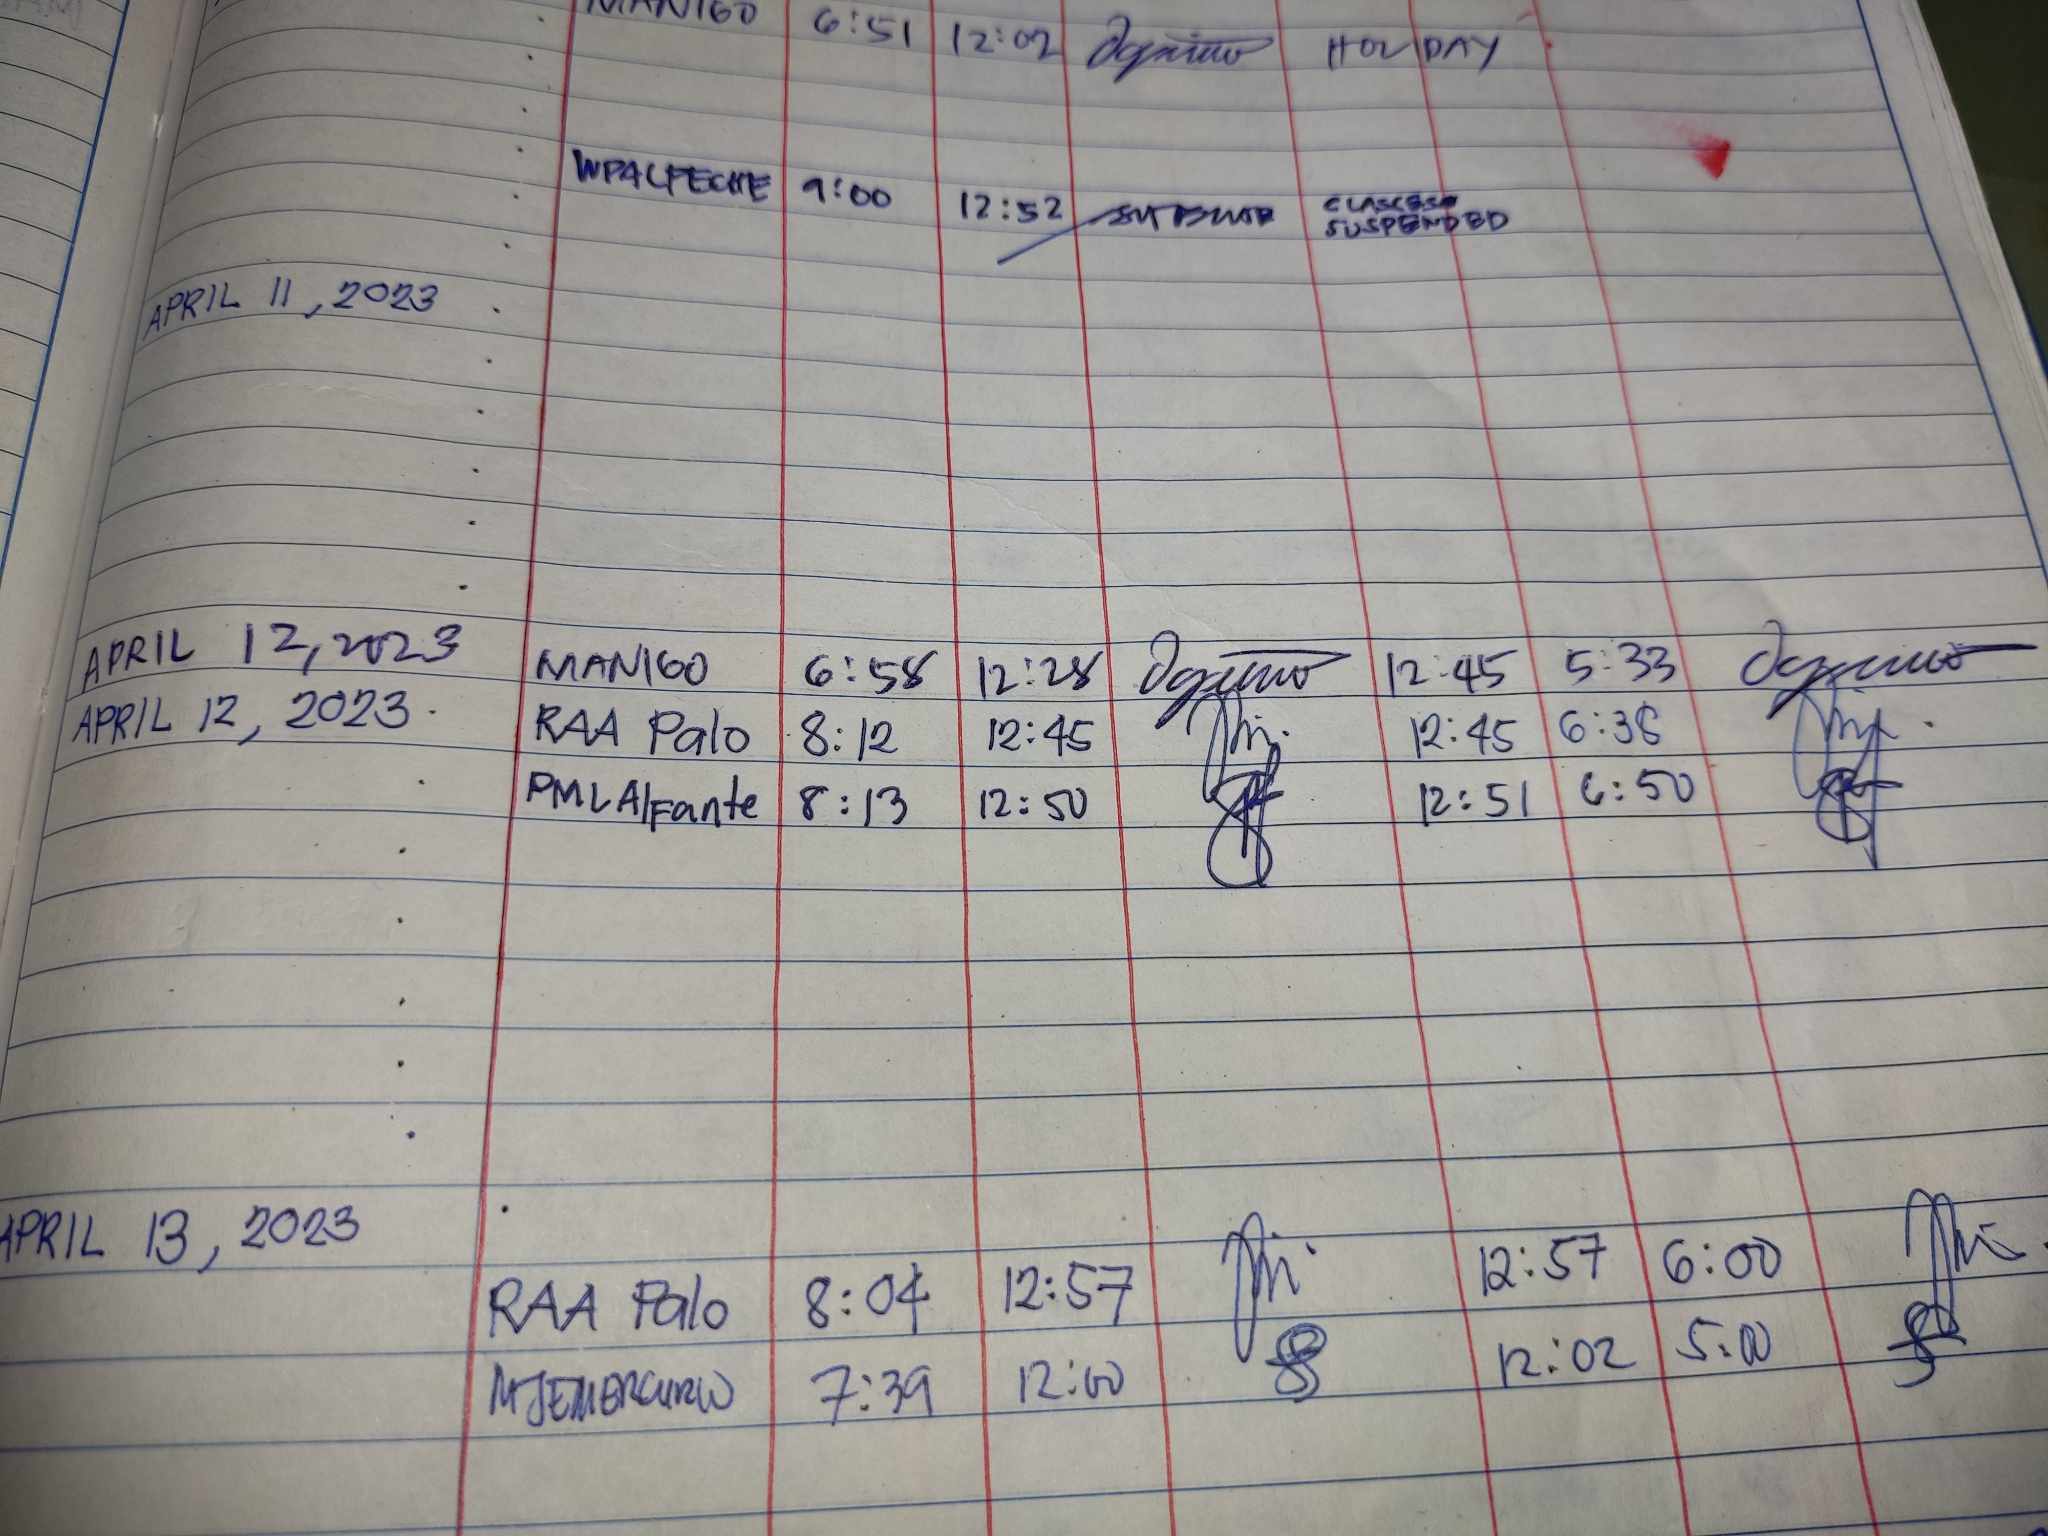 MANIGO 6:51 12:02 HOLIDAY
WPALFECHE 9:00 12:52 CLASCESS
SUSPENDED
APRIL 11, 2023
APRIL 12, 2023 MANIGO 6:58 12:28 12:45 5:33
APRIL 12, 2023 RAA Palo 8:12 12:45 12:45 6:38
PMLAlfante 8:13 12:50 12:51 6:50
APRIL 13, 2023
RAA Palo 8:04 12:57 12:57 6:00
MJEMERCURIO 7:39 12:00 12:02 5:00